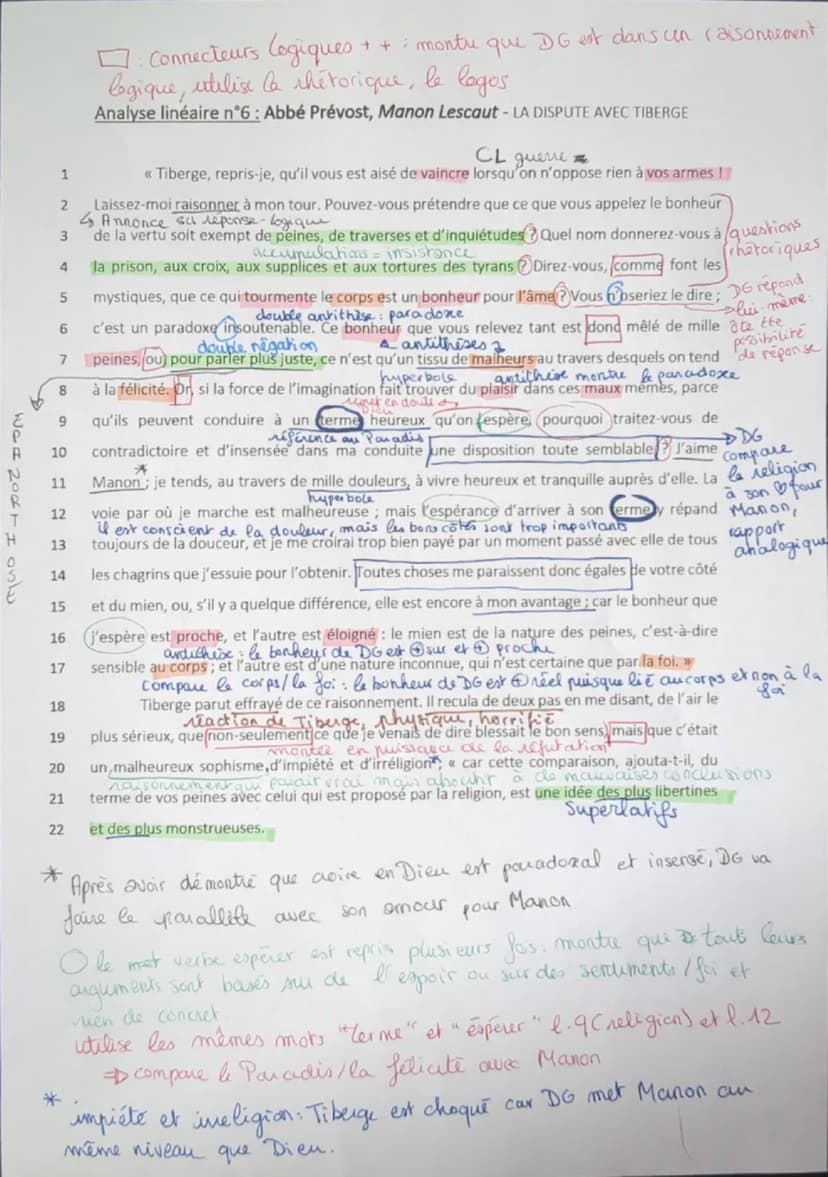 □ : Connecteurs Logiques ++ : montre que DG est dans un raisonnement
logique, utilise la rhétorique, le logos
Analyse linéaire n°6 : Abbé Prévost, Manon Lescaut - LA DISPUTE AVEC TIBERGE
CL guerre
1 « Tiberge, repris-je, qu'il vous est aisé de vaincre lorsqu'on n'oppose rien à vos armes !
2 Laissez-moi raisonner à mon tour. Pouvez-vous prétendre que ce que vous appelez le bonheur
↳ Annonce sa réponse logique
3 de la vertu soit exempt de peines, de traverses et d'inquiétudes ? Quel nom donnerez-vous à
questions
rhétoriques
accumulations = insistance
4 la prison, aux croix, aux supplices et aux tortures des tyrans ? Direz-vous, comme font les
5 mystiques, que ce qui tourmente le corps est un bonheur pour l'âme ? Vous n'oseriez le dire ;
DG répond
lui-même :
ôte tte
possibilité
de réponse
double antithèse : paradoxe
6 c'est un paradoxe insoutenable. Ce bonheur que vous relevez tant est donc mêlé de mille
double négation
antithèses
7 peines, ou pour parler plus juste, ce n'est qu'un tissu de malheurs au travers desquels on tend
hyperbole
antithèse montre le paradoxe
8 à la félicité. Or, si la force de l'imagination fait trouver du plaisir dans ces maux mêmes, parce
EPANORTHOSE
9 qu'ils peuvent conduire à un terme heureux qu'on espère, pourquoi traitez-vous de
référence au Paradis
10 contradictoire et d'insensée dans ma conduite une disposition toute semblable ? J'aime
→ DG
compare
la religion
à son ♡ pour
Manon,
rapport
analogique
11 Manon ; je tends, au travers de mille douleurs, à vivre heureux et tranquille auprès d'elle. La
*
hyperbole
12 voie par où je marche est malheureuse ; mais l'espérance d'arriver à son terme y répand
il est conscient de la douleur, mais les bons côtés sont trop importants
13 toujours de la douceur, et je me croirai trop bien payé par un moment passé avec elle de tous
14 les chagrins que j'essuie pour l'obtenir. Toutes choses me paraissent donc égales de votre côté
15 et du mien, ou, s'il y a quelque différence, elle est encore à mon avantage ; car le bonheur que
16 j'espère est proche, et l'autre est éloigné : le mien est de la nature des peines, c'est-à-dire
antithèse : le bonheur de DG est ⊕ sur et ⊕ proche
17 sensible au corps ; et l'autre est d'une nature inconnue, qui n'est certaine que par la foi. »
Compare le corps / la foi : le bonheur de DG est ⊕ réel puisque lié au corps et non à la
foi
18 Tiberge parut effrayé de ce raisonnement. Il recula de deux pas en me disant, de l'air le
réaction de Tiberge, physique, horrifié
19 plus sérieux, que non-seulement ce que je venais de dire blessait le bon sens, mais que c'était
montée en puissance de la réfutation
20 un malheureux sophisme d'impiété et d'irréligion* ; « car cette comparaison, ajouta-t-il, du
raisonnement qui parait vrai mais aboutit à de mauvaises conclusions
21 terme de vos peines avec celui qui est proposé par la religion, est une idée des plus libertines
Superlatifs
22 et des plus monstrueuses.
* Après avoir démontré que croire en Dieu est paradoxal et insensé, DG va
faire le parallèle avec son amour pour Manon
○ le verbe espérer est repris plusieurs fois : montre que tout leurs
arguments sont basés sur de l'espoir ou sur des sentiments / foi et
rien de concret
utilise les mêmes mots "terme" et "espérer" l.9 (religion) et l.12
⇒ compare le Paradis / la félicité avec Manon
* impiété et irreligion : Tiberge est choqué car DG met Manon au
même niveau que Dieu.